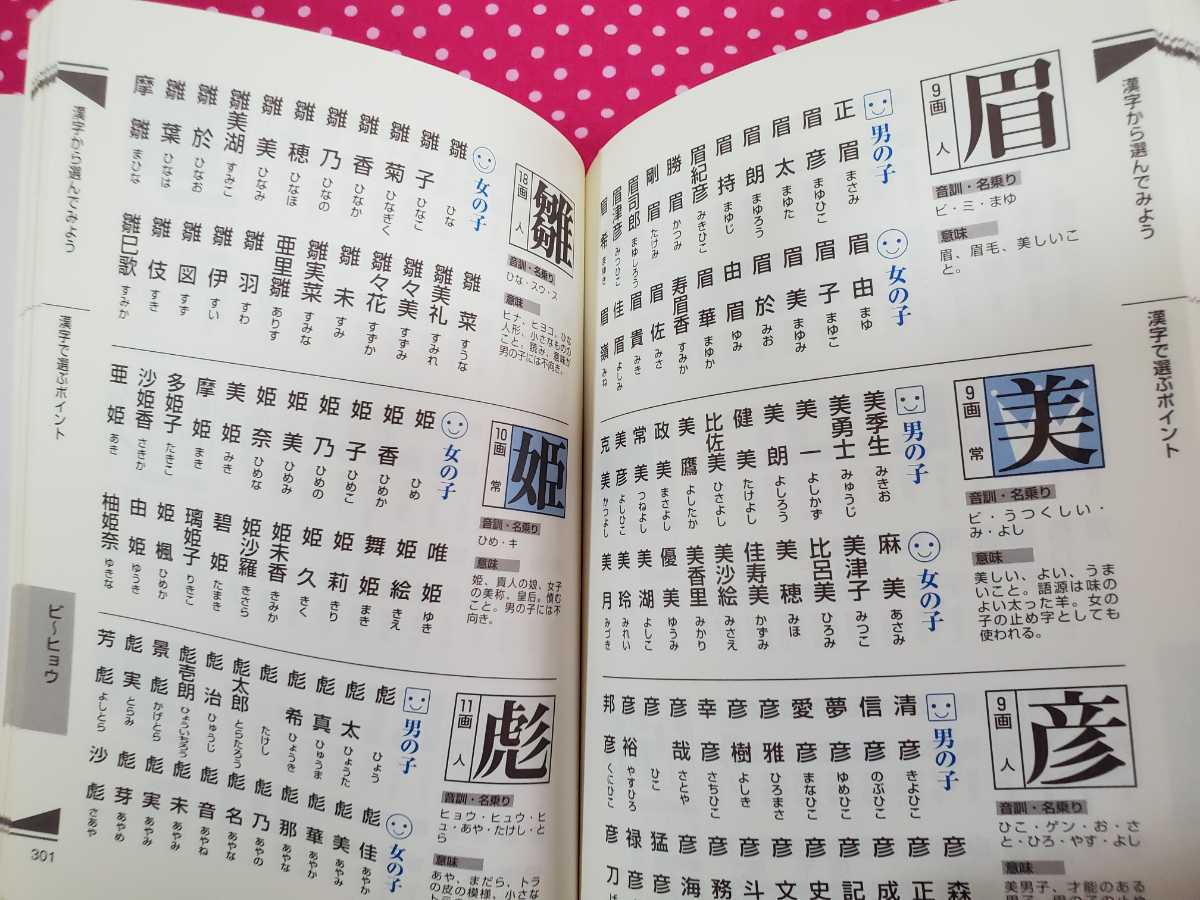 漢字から選んでみよう
漢字で選ぶポイント
眉
9画 人
音訓・名乗り
ビ・ミ・まゆ
意味
眉、眉毛、美しいこ
と。
男の子
正眉 まさみ
眉彦 まゆひこ
眉太 まゆた
眉朗 まゆろう
眉持 まゆじ
眉紀彦 みきひこ
勝眉 かつみ
剛眉 たけみ
眉司郎 まゆしろう
眉津彦 みつひこ
眉希 まゆき
女の子
眉由 まゆ
眉子 まゆこ
眉美 まゆみ
眉於 みお
由眉 ゆみ
眉華 まゆか
寿眉香 すみか
眉佐 みさ
眉貴 みき
佳眉 よしみ
眉嶺 みね
美
9画 常
音訓・名乗り
ビ・うつくしい・
み・よし
意味
美しい、よい、うま
いこと。語源は味の
よい太った羊。女の
子の止め字としても
使われる。
男の子
美季生 みきお
美勇士 みゅうじ
美一 よしかず
美朗 よしろう
健美 たけよし
比佐美 ひさよし
美鷹 よしたか
政美 まさよし
常美 つねよし
美彦 よしひこ
克美 かつよし
女の子
麻美 あさみ
美津子 みつこ
比呂美 ひろみ
美穂 みほ
佳寿美 かずみ
美沙絵 みさえ
美香里 みかり
優美 ゆうみ
美湖 よしこ
美玲 みれい
美月 みづき
彦
9画 人
音訓・名乗り
ひこ・ゲン・お・さ
と・ひろ・やす・よし
意味
美男子、才能のある
男の子
清彦 きよひこ
信彦 のぶひこ
夢彦 ゆめひこ
愛彦 まなひこ
彦雅 ひろまさ
彦樹 よしき
幸彦 さちひこ
彦哉 さとや
彦 ひこ
彦裕 やすひろ
邦彦 くにひこ
雛
18画 人
音訓・名乗り
ひな・スウ・ス
意味
ヒナ、ヒヨコ、ひな
人形、小さなものの
こと。読み、意味が
男の子には不向き。
女の子
雛 ひな
雛子 ひなこ
雛菊 ひなぎく
雛香 ひなか
雛乃 ひなの
雛穂 ひなほ
雛美 ひなみ
雛美湖 すみこ
雛於 ひなお
雛葉 ひなは
摩雛 まひな
雛菜 すうな
雛美礼 すみれ
雛々美 すずみ
雛々花 すずか
雛未 すみ
雛実菜 すみな
亜里雛 ありす
雛羽 すわ
雛伊 すい
雛図 すず
雛伎 すき
雛巳歌 すみか
姫
10画 常
音訓・名乗り
ひめ・キ
意味
姫、貴人の娘、女子
の美称、皇后。慎む
こと。男の子には不
向き。
女の子
姫 ひめ
姫香 ひめか
姫子 ひめこ
姫乃 ひめの
姫美 ひめみ
姫奈 ひめな
美姫 みき
摩姫 まき
多姫子 たきこ
沙姫香 さきか
亜姫 あき
唯姫 ゆき
姫絵 きえ
舞姫 まき
姫莉 きり
姫久 きく
姫未香 きみか
姫沙羅 きさら
碧姫 たまき
璃姫子 りきこ
姫楓 ひめか
由姫 ゆうき
柚姫奈 ゆきな
彪
11画 人
音訓・名乗り
ヒョウ・ヒュウ・ヒ
ュ・あや・たけし・と
ら
意味
あや、まだら、トラ
の皮の模様、小さな
男の子
彪 ひょう
彪太 ひょうた
彪真 ひゅうま
彪希 ひょうき
彪 たけし
彪太郎 とらたろう
彪治 ひゅうじ
彪壱朗 ひょういちろう
景彪 かげとら
彪実 とらみ
芳彪 よしとら
女の子
彪佳 あやか
彪美 あやみ
彪華 あやか
彪那 あやな
彪乃 あやの
彪名 あやな
彪音 あやね
彪未 あやみ
彪実 あやみ
彪芽 あやめ
沙彪 さあや
漢字から選んでみよう
漢字で選ぶポイント
ビ〜ヒョウ
301